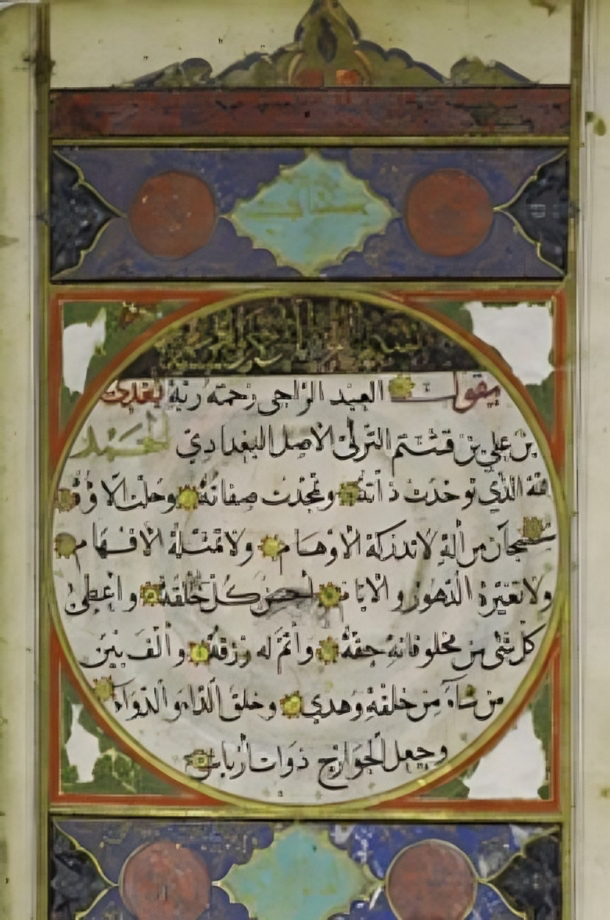 يقول العبد الراجي رحمة ربه بغدي
بن علي بن قشتمر التركي الاصل البغدادي الحمد
لله الذي توحدت ذاته وتمجدت صفاته وجلت الاؤه
سبحان من اله لا تدركه الاوهام ولا تمثله الافهام
ولا تغيره الدهور والايام احسن كل خلقه واعطى
كل شي من مخلوقاته حقه واتم له رزقه والف بين
من شاء من خلقه وهدى وخلق الداء والدواء
وجعل الجوارح ذوات ارباش